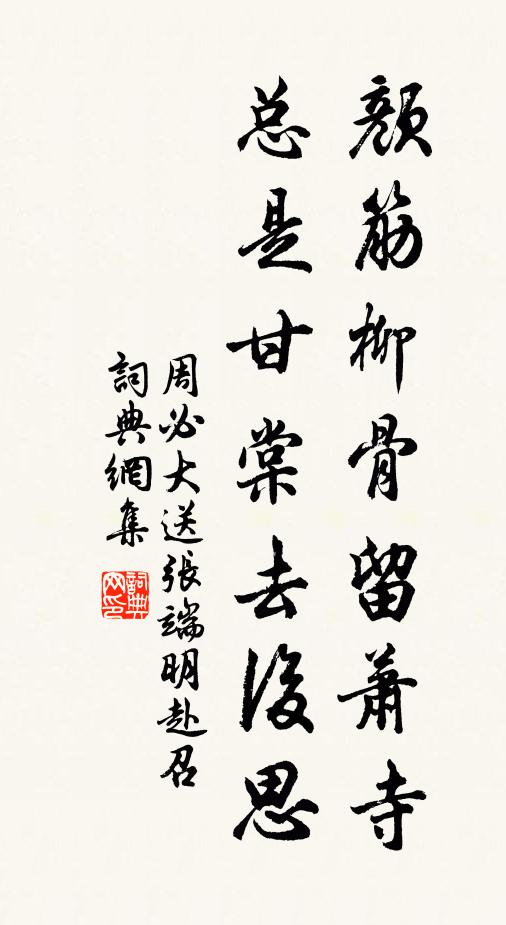 颜筋柳骨留萧寺
总是甘棠去后思
周必大送張端明赴召
詞典網集
詞典网印